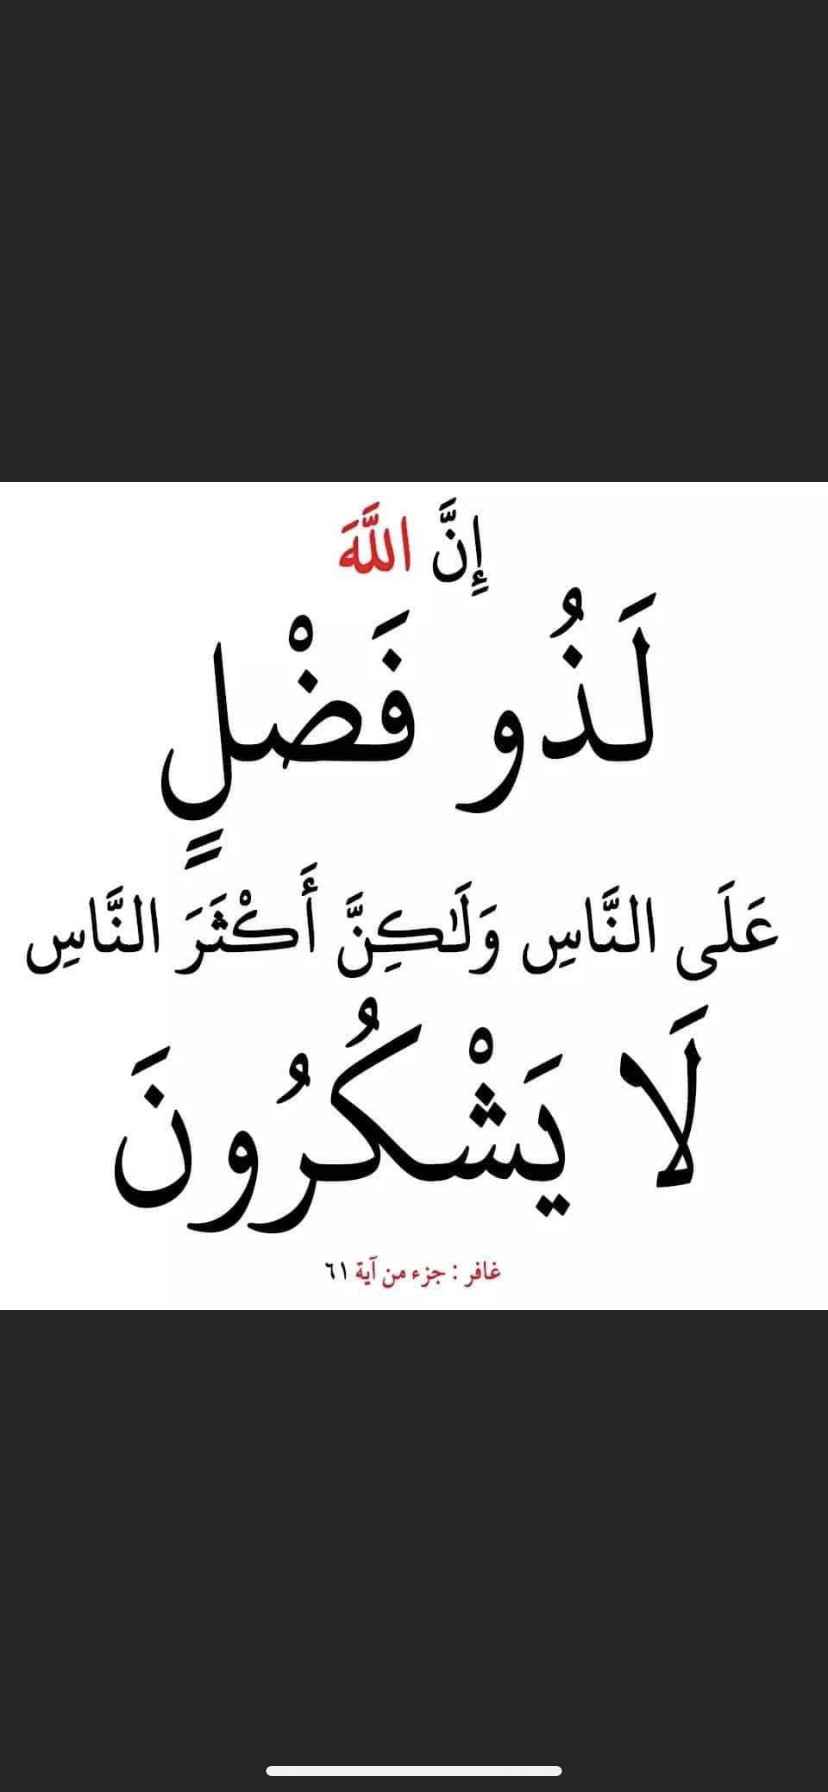 إِنَّ اللَّهَ
لَذُو فَضْلٍ
عَلَى النَّاسِ وَلَٰكِنَّ أَكْثَرَ النَّاسِ
لَا يَشْكُرُونَ
غافر : جزء من آية ٦١